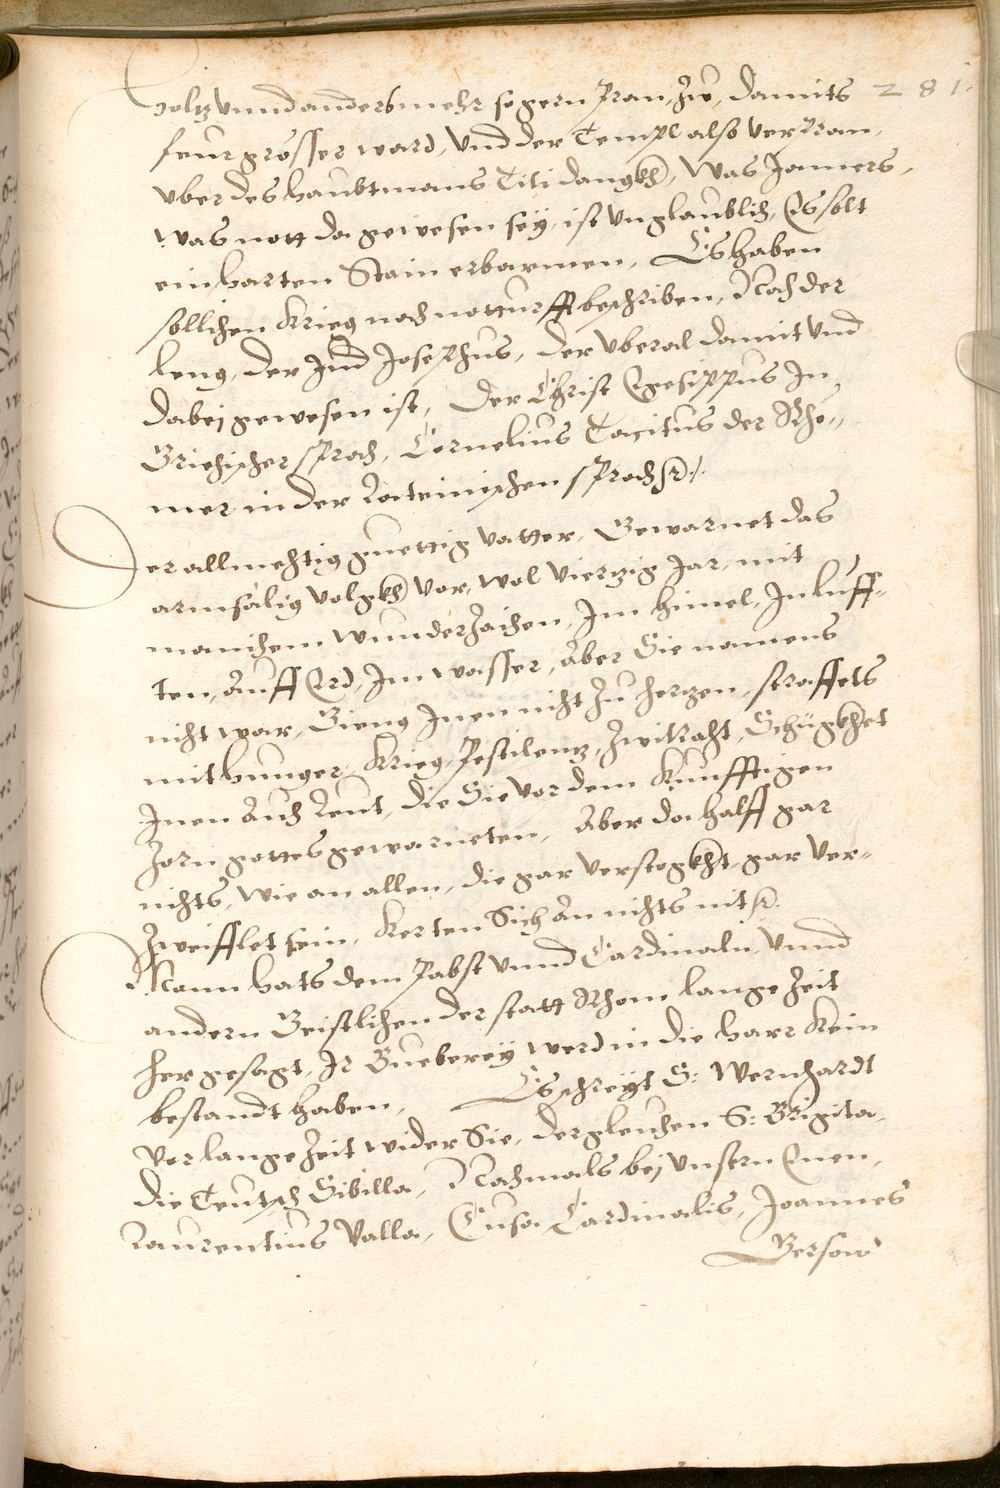 281.
holtz vnnd anders mehr so gern Pran, zu, damits
feur grösser ward, Vnd der Templ also verpran,
vber des haubtmans Titi dangkh, Was Jamers,
was nott da gewesen seÿ, ist vnglaublich, Es solt
ein harten Stain erbarmen, Es haben
sollichen Krieg nach notturfft beschriben, Nach der
leng, der Jud Josephus, der vberal damit vnd
dabej gewesen ist, Der Christ Egesippus In
Griechischer sprach, Cornelius Tacitus der Rhö-
mer in der Lateinischen sprach etc.
Der allmechtig guettig vatter, Gewarnet das
armsälig volgkh vor, wol vierzig Jar, mit
manichem wunderzaichen, Im himel, In lüff-
ten, Auff Erd, Im wasser, Aber Sie namens
nicht war, Gieng Inen nicht zu herzen, straffets
mit hunger, Krieg, Pestilentz, Zwitracht, Schigkhet
Inen Auch Leut, die Sie vor dem Kunfftigen
Zorn gottes gewarneten, Aber da halff gar
nichts, wie an allen, die gar verstogkht, gar ver-
zweifflet sein, Kerten Sich An nichts nit etc.
Man hats dem Pabst vnnd Cardinaln, Vnnd
andern Geistlichen der statt Rhom lange Zeit
her gesagt, Ir Bueberey werd in die harr Kein
bestandt haben, Es schreÿt S: Wernhardt
vor lange Zeit wider Sie, dergleichen S: Brigita,
die Teutsch Sibilla, Nachmals bej vnsern Enen,
Laurentius Valla, Cusa Cardinalis, Joannes
Gerson